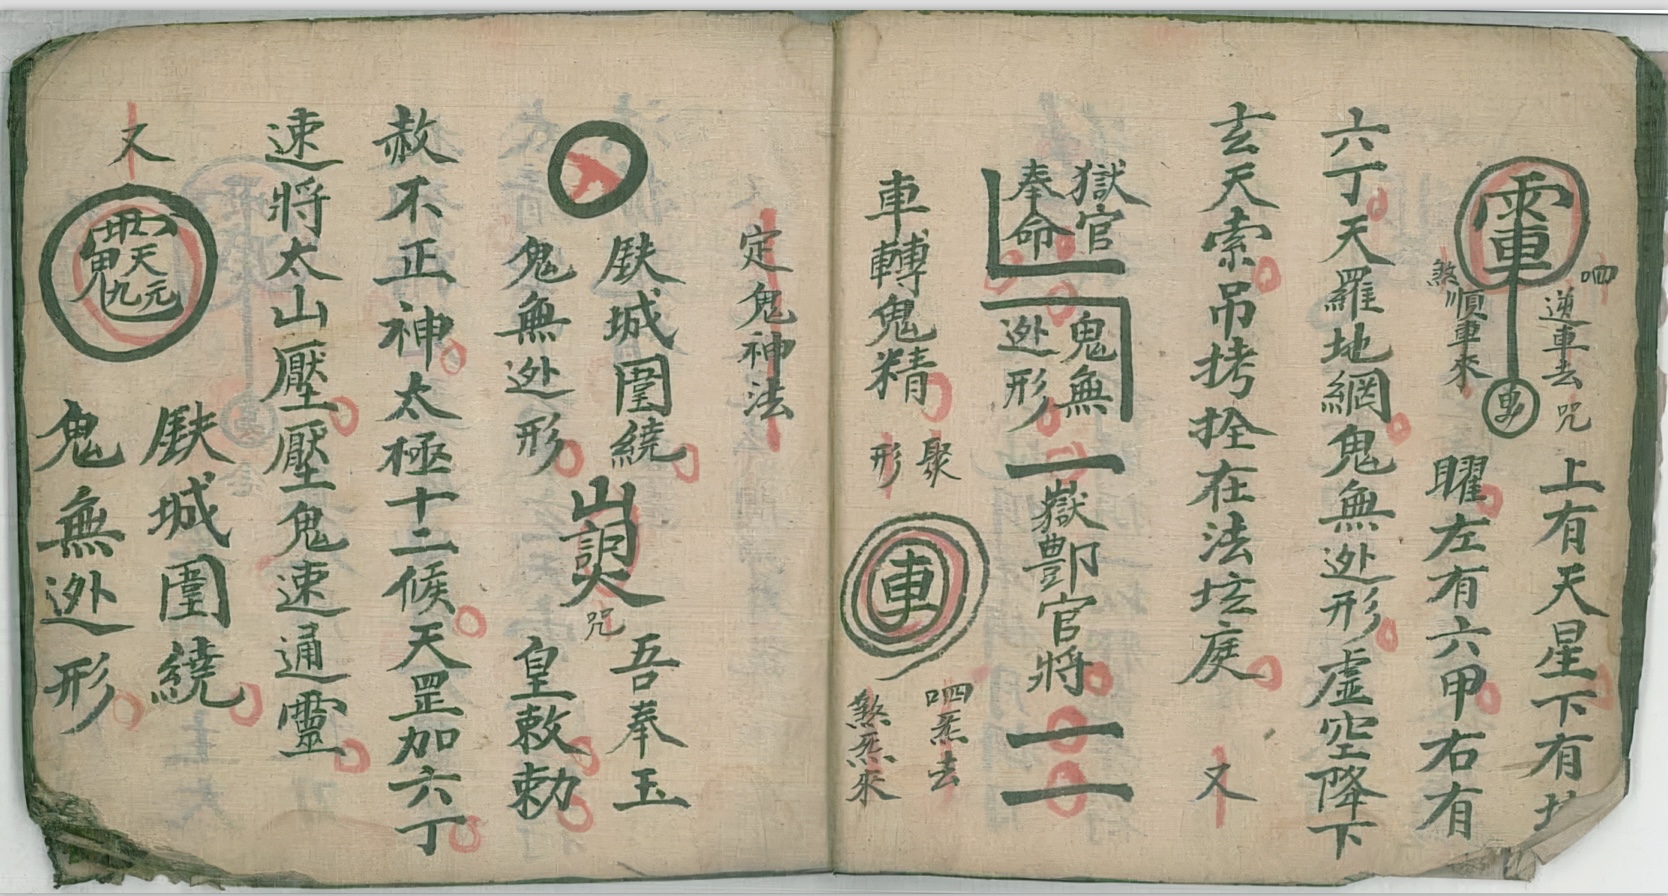 呬
逆車去
咒
煞
順車來
上有天星下有
曜左有六甲右有
六丁天羅地網鬼無迯形虛空降下
玄天索吊拷拴在法坛庭
又
獄官
奉命
鬼無
迯形
獄酆卩官將
車轉鬼精
聚
形
車
呬炁去
煞炁來
定鬼神法
鉄城圍繞
鬼無迯形
咒
吾奉玉
皇敕勅
赦不正神太極十二候天罡加六丁
速將太山壓壓鬼速通靈
又
天元九
鉄城圍繞
鬼無迯形